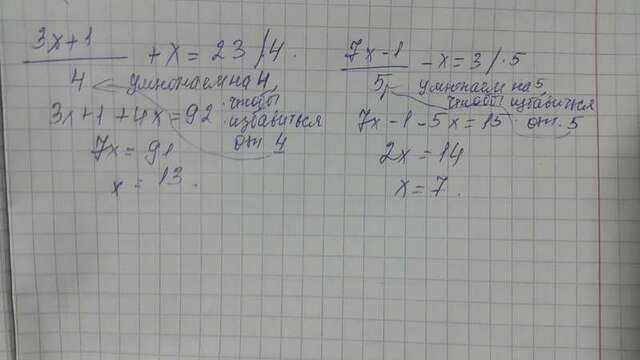 3x+1
+ x = 23 / 4.
4
умножаем на 4,
чтобы
3x+1+4x=92
избавиться
от 4
7x = 91
x = 13.
7x-1
- x = 3 / · 5
5
умножаем на 5,
чтобы избавиться
7x-1-5x=15 от 5
2x = 14
x = 7.